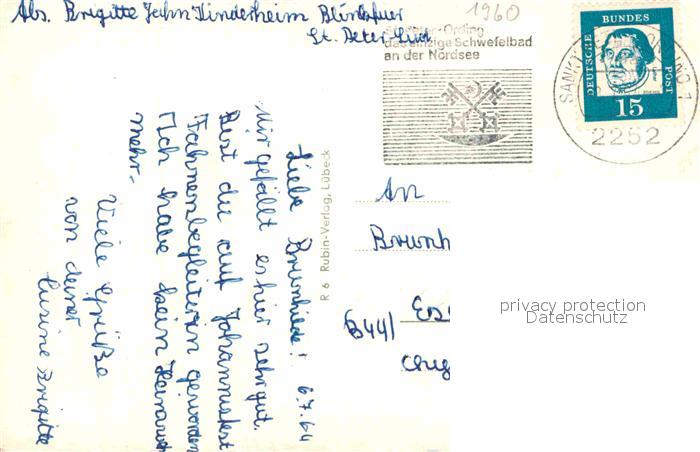 Abs. Brigitte Jahn Kinderheim
St. Peter-Süd
1960
St. Peter-Ording
das einzige Schwefelbad
an der Nordsee
DEUTSCHE BUNDES POST
15
SANKT
2252
Liebe Brunhilde! 6.7.64
Mir gefällt es hier sehr gut.
Bist du auf Johannisfest
Fahnenbegleiterin geworden
Ich habe kein Heimweh
mehr.
Viele Grüße
von deiner
Cusine Brigitte
R 6 Rubin-Verlag, Lübeck
An
Brunh
844/
privacy protection
Datenschutz